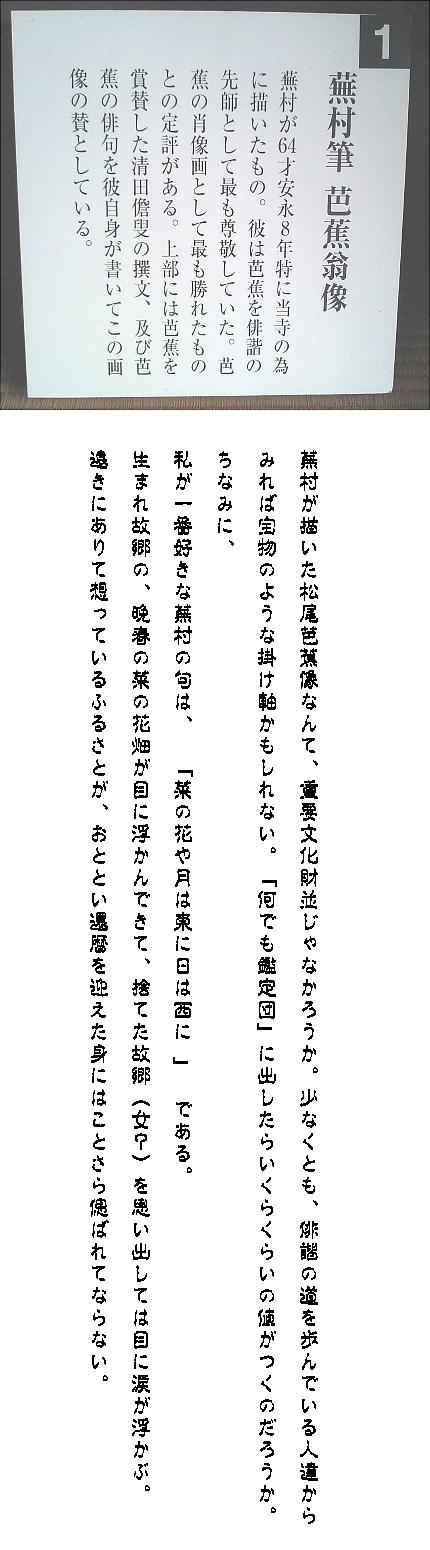 1
蕪村筆 芭蕉翁像
蕪村が64才安永8年特に当寺の為
に描いたもの。彼は芭蕉を俳諧の
先師として最も尊敬していた。芭
蕉の肖像画として最も勝れたもの
との定評がある。上部には芭蕉を
賞賛した清田儋叟の撰文、及び芭
蕉の俳句を彼自身が書いてこの画
像の賛としている。
蕪村が描いた松尾芭蕉像なんて、重要文化財並じゃなかろうか。少なくとも、俳諧の道を歩んでいる人達から
みれば宝物のような掛け軸かもしれない。「何でも鑑定団」に出したらいくらくらいの値がつくのだろうか。
ちなみに、
私が一番好きな蕪村の句は、 「菜の花や月は東に日は西に 」 である。
生まれ故郷の、晩春の菜の花畑が目に浮かんできて、捨てた故郷(女?)を思い出しては目に涙が浮かぶ。
遠きにありて想っているふるさとが、おととい還暦を迎えた身にはことさら偲ばれてならない。